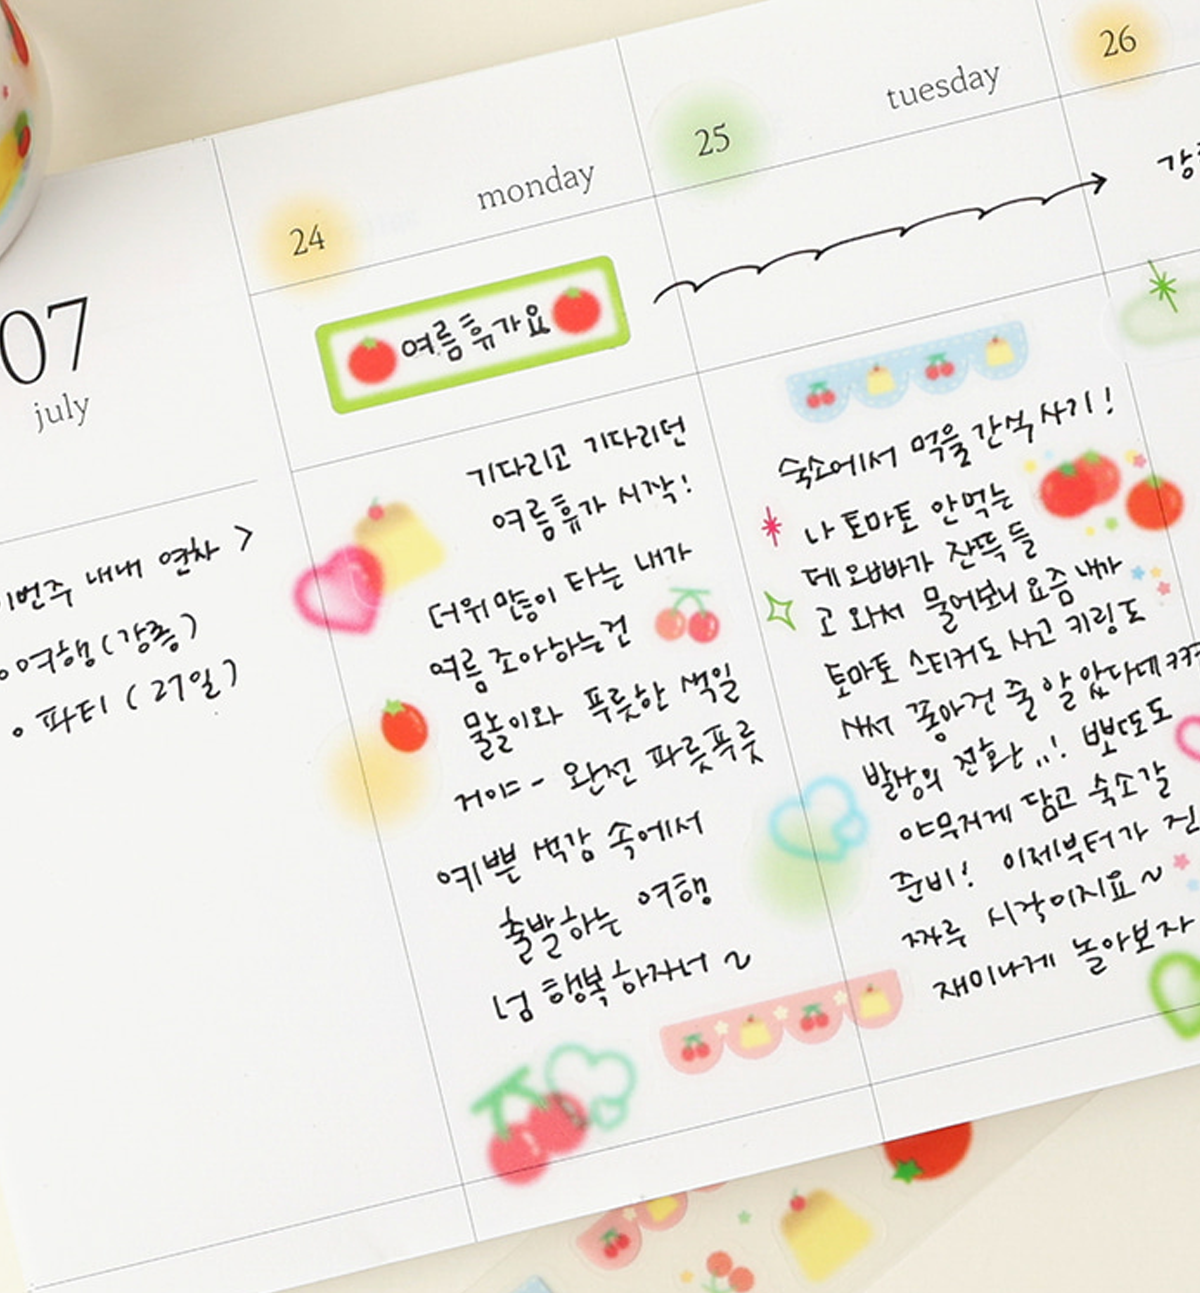 07
july
이번주 내내 연차 >
o 여행(강릉)
o 파티 ( 27일 )
24
monday
여름휴가요
기다리고 기다리던
여름휴가 시작!
더위 많이 타는 내가
여름 조아하는건
물놀이와 푸릇한 색일
거야- 완전 파릇푸릇
예쁜 색감 속에서
출발하는 여행
넘 행복하자너 ~
25
tuesday
숙소에서 먹을 간식 사기!
나 토마토 안먹는
데 오빠가 잔뜩 들
고 와서 물어보니 요즘 내가
토마토 스티커도 사고 키링도
사서 좋아건 줄 알았다네 ㅋㅋㅋ
발상의 전환..! 뽀또도
야무지게 담고 숙소갈
준비! 이제부터가 진
짜루 시작이지요~
재미나게 놀아보자
26